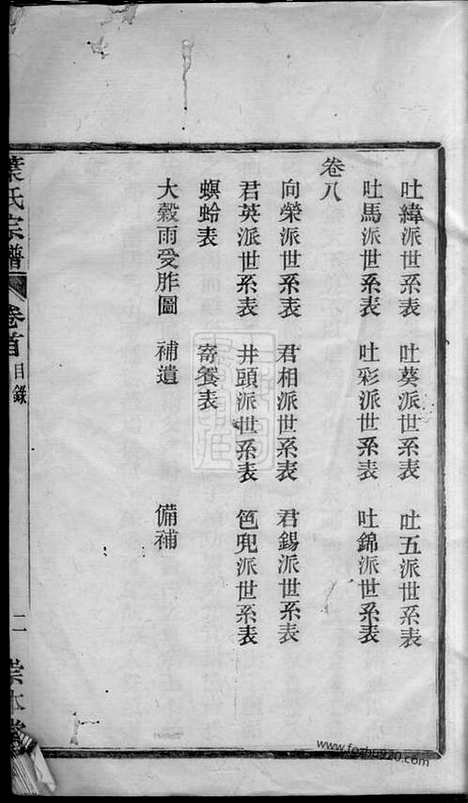 吐緯派世系表　吐葵派世系表　吐五派世系表
吐馬派世系表　吐彩派世系表　吐錦派世系表
卷八
向榮派世系表　君相派世系表　君錫派世系表
君英派世系表　井頭派世系表　笆兜派世系表
螟蛉表　寄養表
大穀雨受胙圖　補遺　備補
葉氏宗譜　卷首　目錄　二　崇本堂
www.fozhu920.com